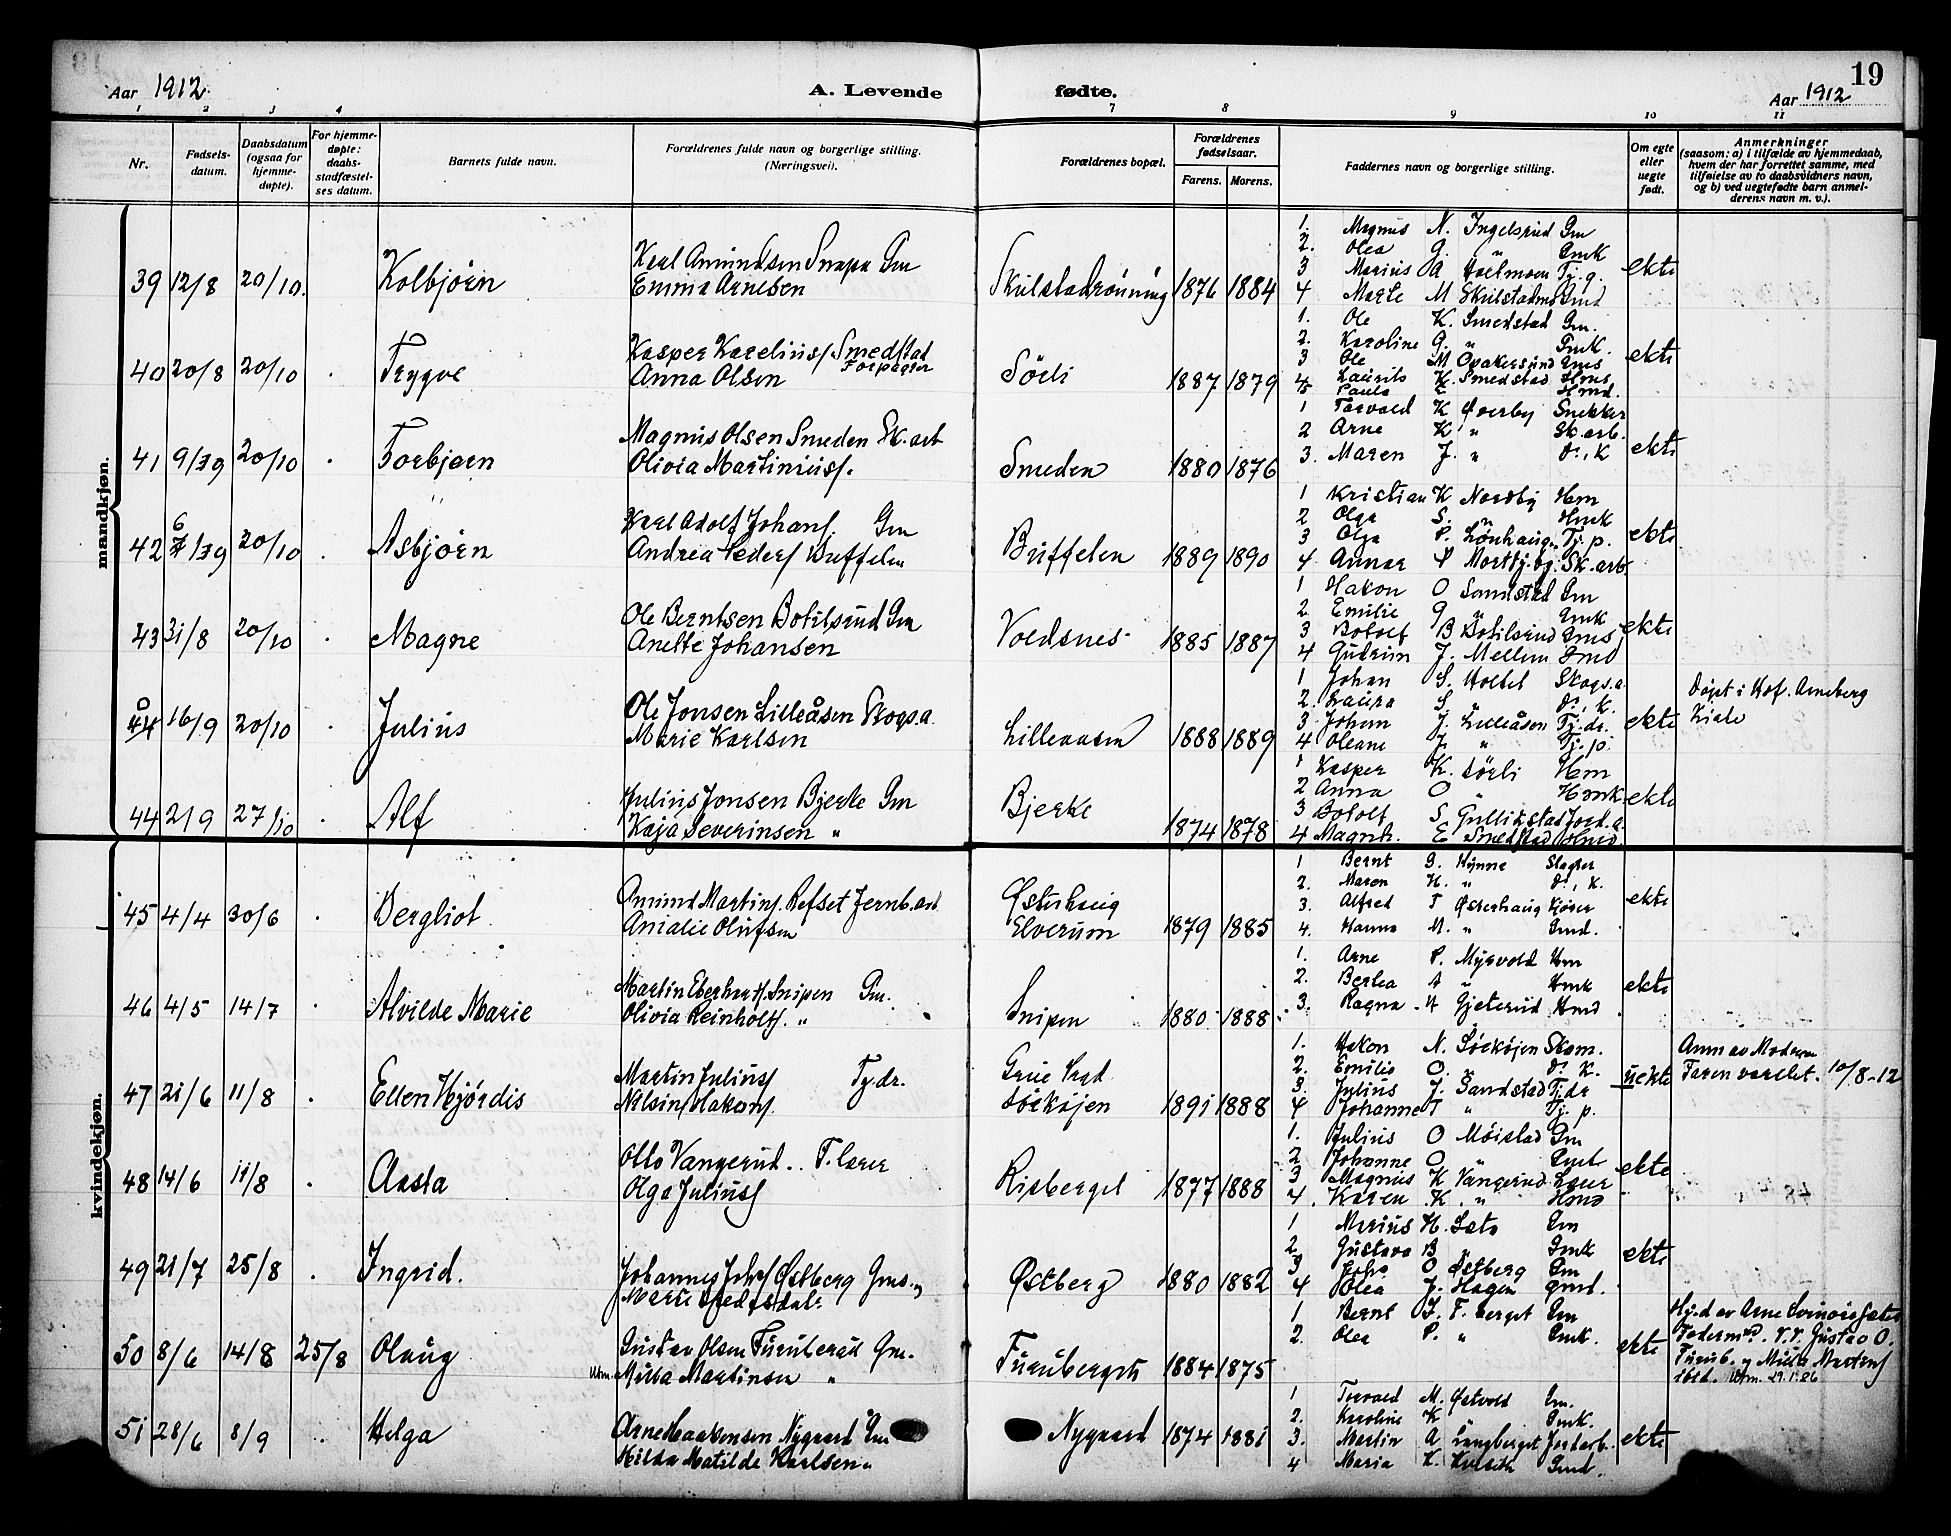 19
Aar 1912
A. Levende fødte.
Aar 1912
1 2 3 4 7 8 9 10 11
Nr.
Fødsels-
datum.
Daabsdatum
(ogsaa for
hjemme-
døpte).
For hjemme-
døpte:
daabs-
stadfæstel-
ses datum.
Barnets fulde navn.
Forældrenes fulde navn og borgerlige stilling.
(Næringsvei).
Forældrenes bopæl.
Forældrenes
fødselsaar.
Farens. Morens.
Faddernes navn og borgerlige stilling.
Om egte
eller
uegte
født.
Anmerkninger
(saasom: a) i tilfælde av hjemmedaab,
hvem der har forrettet samme, med
tilføielse av to daabsvidners navn,
og b) ved uegtefødte barn anmel-
derens navn m. v.).
mandkjøn.
39 12/8 20/10. Kolbjørn
Karl Amundsen Snapa Gm
Emma Arnesen
Skulstadrønning 1876 1884
1. Magnus N. Ingelsrud Gm
2. Olea G. " Gmk
3 Marius A Haelmoen Tj. g.
4 Marte M Skulstadmo Gmd
ekte
40 20/8 20/10 . Trygve
Kasper Kareliuss Smedstad
Forpagter
Anna Olsen
Sörli 1887 1879
1. Ole K. Smedstad Gm.
2. Karoline G. " Gmk.
3 Ole M Opakersund Gms
4 Laurits K. Smedstad Hms
5 Paula E Hmd.
ekte
41 9/39 20/10 . Torbjørn
Magnus Olsen Smeden Sk. arb
Olivia Martiniuss.
Smeden 1880 1876
1 Torvald K Øverby Snekker
2 Arne K " Sk. arb.
3. Maren J. " do, K
ekte
42 6/39 20/10 . Asbjørn
Karl Adolf Johans. Gm
Andrea Peders Buffelen
Buffelen 1889 1890
1 Kristian K Nordby Hm
2 Olga S. " Hmk
3 Olga P. Lønhaugen Tj. p.
4 Annar P Mortby.bg. Sk. arb.
ekte
43 31/8 20/10 . Magne
Ole Berntsen Botilsrud Gm
Anette Johansen
Voldsnes 1885 1887
1 Hakon O Sandstad Gm
2. Emilie G. " Gmk
3 Botolf B Botilsrud Gms
4 Gudrun J. Mellem Gmd
ekte
44 16/9 20/10 . Julius
Ole Jonsen Lilleåsen Skogs.a.
Marie Karlsen
Lilleaasen 1888 1889
1 Johan S. Holtet Skogs.a.
2. Laura S. " do, K.
3. Johan J. Lilleåsen Tj. dr.
4 Oleane J. " Tj. p.
ekte
Døpt i Hof. Arneberg
Kirke
44 21 9 27/10 . Alf
Julius Jonsen Bjerke Gm
Kaja Severinsen "
Bjerke 1874 1878
1 Kasper K. Sörli Hm
2 Anna O " Hmk.
3 Botolf S. Gullikstad Jord. a.
4 Magnh. E Smedstad Hmd.
ekte
kvindekjøn.
45 4/4 30/6 . Bergliot
Amund Martins. Refset Jernb. arb
Amalie Olufsen
Østerhaug
Elverum 1879 1885
1 Bernt G. Kynne Slagter
2. Maren H. " do, K.
3. Alfred T Østerhaug Kjører
4. Hanna M. " Gmd.
ekte
46 4/5 14/7 . Alvilde Marie
Martin Eberharts. Snipen Gm.
Olivia Reinholts. "
Snipen 1880 1888
1. Arne P. Myrvold Hm
2. Bertea A " Hmk
3. Ragna A Gjeterud Hmd
ekte
47 21/6 11/8 . Ellen Hjördis
Martin Juliuss Tj. dr.
Nilsine Hakons.
Grue Srgd
Söeköjen 1891 1888
1. Hakon N. Söeköjen Skom.
2. Emilie O. " do K.
3. Julius J. Sandstad Tj. dr
4 Johanne T " Tj. p.
uekte
Anm av Moderen
Faren varslet. 10/8-12
48 14/6 11/8 . Aasta
Otto Vangerud .. T. lærer
Olga Juliuss
Risberget 1877 1888
1. Julius O Möistad Gm
2 Johanne O " Gmk
3 Magnus K Vangerud Lærer
4. Karen K. " Hmd
ekte
49 21/7 25/8 . Ingrid.
Johannes Johs Østberg Gms.
Østberg 1880 1882
1 Marius H. Sæta Gm
2. Gustava B Gmk
3 Johs O Østberg Gm
4 Olea J. Hagen Gmd.
ekte
50 8/6 14/8 25/8 Olaug
Gustav Olsen Furuberget Gm.
Milla Martinsen "
Furuberget 1884 1875
1 Bernt L. F. berget Gm
2. Olea P. " Gmk.
ekte
Hj. d av Arne
Gustav O.
Furub. og Milla Martins
51 28/6 8/9 . Helga
Arne Haakonsen Nygaard Gm
Hilda Matilde Karlsen "
Nygaard 1874 1881
1 Torvald M. Østvold Gm.
2. Karoline K " Gmk.
3. Martin A Langberget Jordarb.
4 Maria K. Gmd.
ekte